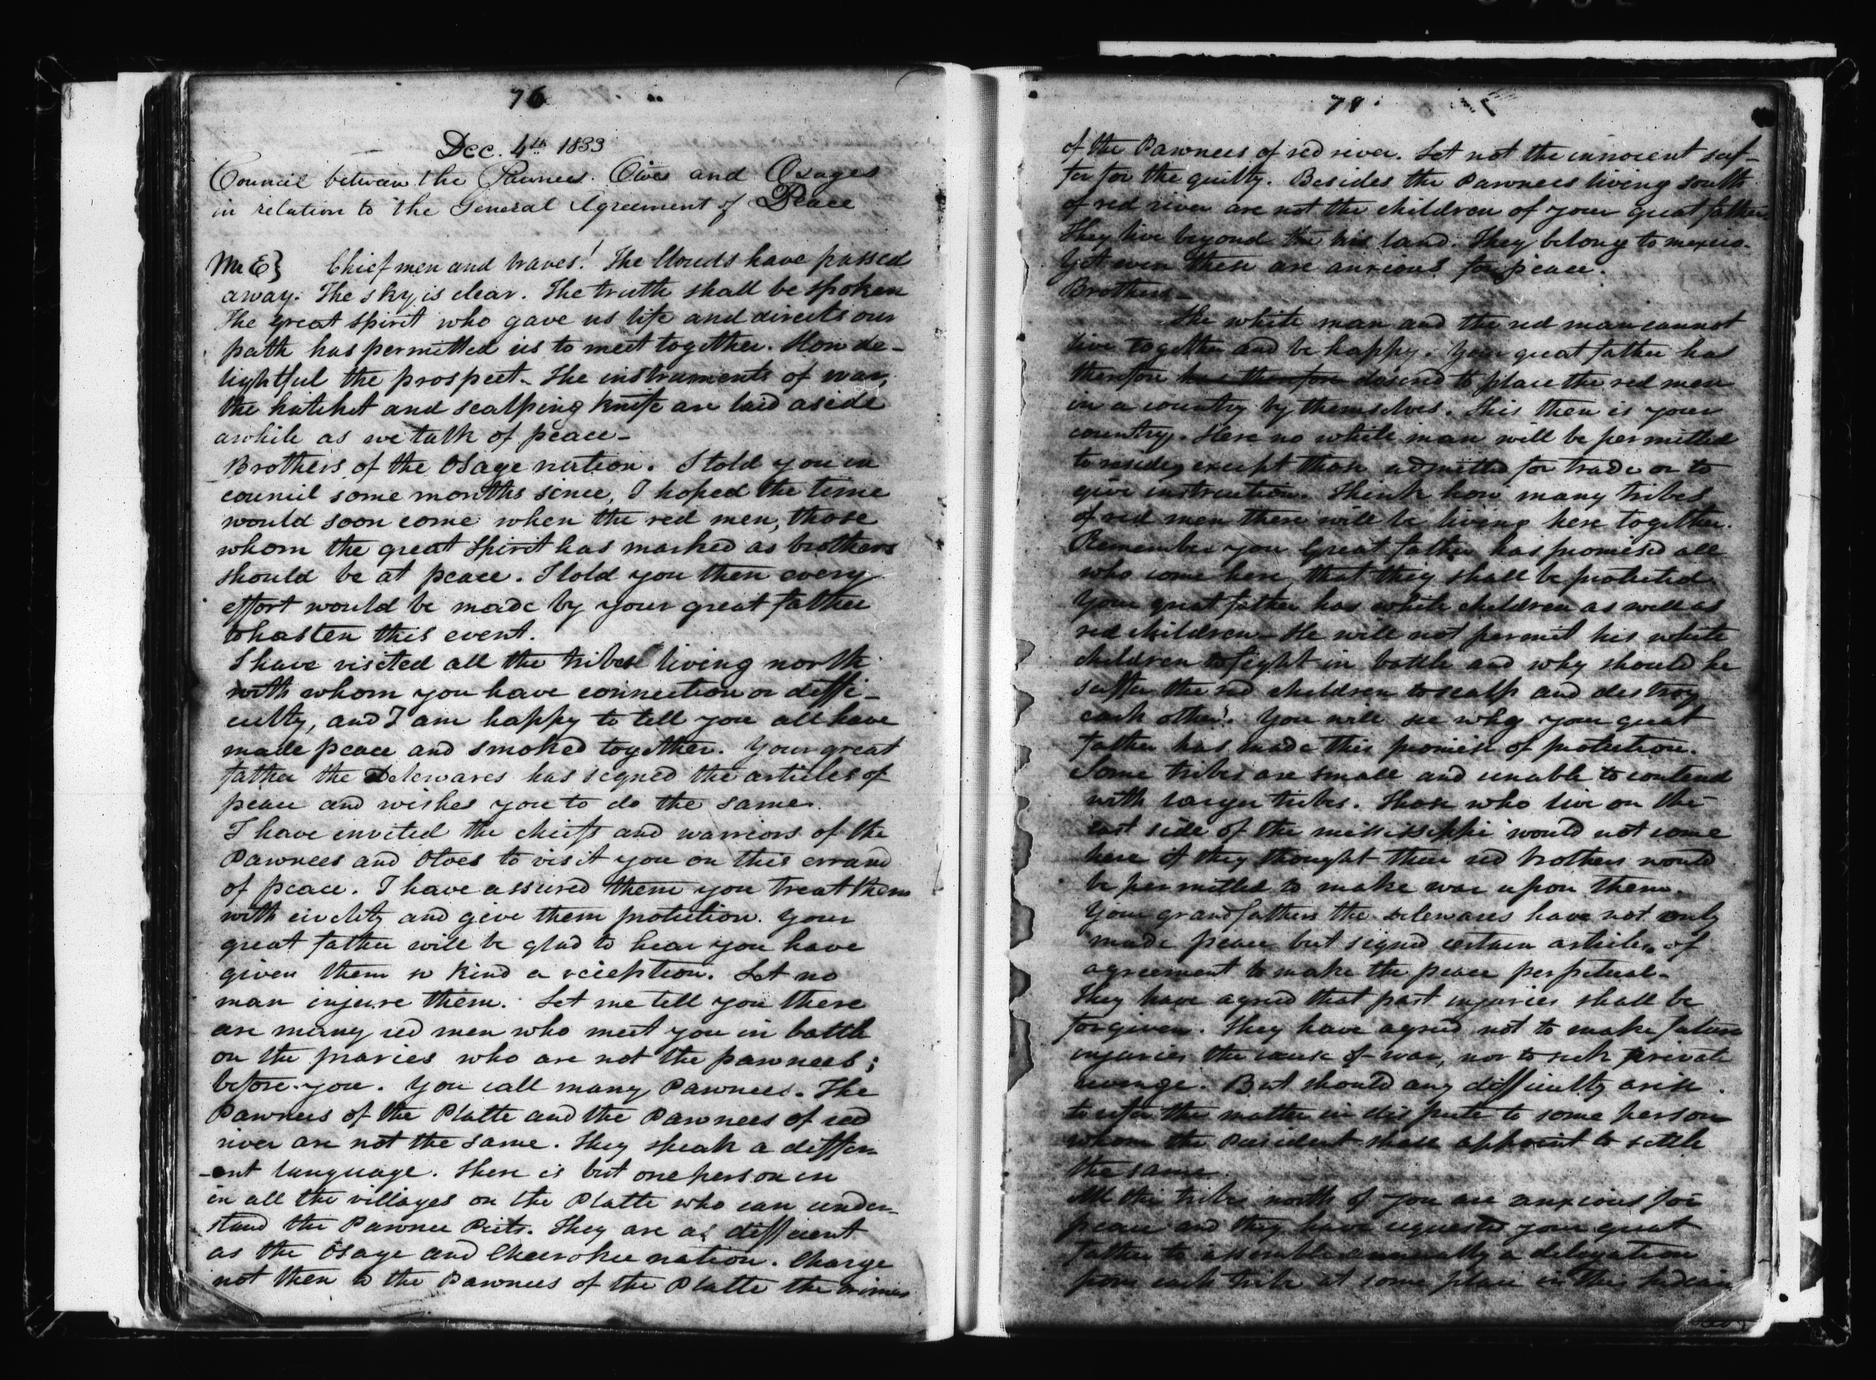 76
Dec. 4th 1833
Council between the Pawnees. Otoes and Osages
in relation to the General Agreement of Peace
Mr E} Chief men and braves! The Clouds have passed
away. The sky is clear. The truth shall be spoken
The great spirit who gave us life and directs our
path has permitted us to meet together. How de-
lightful the prospect - The instruments of war,
the hatchet and scalping knife are laid aside
awhile as we talk of peace -
Brothers of the Osage nation. I told you in
council some months since, I hoped the time
would soon come when the red men, those
whom the great spirit has marked as brothers
should be at peace. I told you then every
effort would be made by your great father
to hasten this event.
I have visited all the tribes living north
with whom you have connection or diffi-
culty, and I am happy to tell you all have
made peace and smoked together. Your great
father the Delewares has signed the articles of
peace and wishes you to do the same.
I have invited the chiefs and warriors of the
Pawnees and Otoes to visit you on this errand
of peace. I have assured them you treat them
with civility and give them protection. Your
great father will be glad to hear you have
given them so kind a reception. Let no
man injure them. Let me tell you there
are many red men who meet you in battle
on the praries who are not the pawnees;
before you. You call many Pawnees. The
Pawnees of the Platte and the Pawnees of red
river are not the same. They speak a differ
-ent language. There is but one person in
in all the villages on the Platte who can under-
stand the Pawnee Picts. They are as different
as the Osage and Cherokee nation. Charge
not then to the Pawnees of the Platte the crimes
78
of the Pawnees of red river. Let not the innocent suf-
fer for the guilty. Besides the Pawnees living south
of red river are not the children of your great father
They live beyond the his land. They belong to mexico.
Yet even these are anxious for peace.
Brothers -
The white man and the red man cannot
live together and be happy. Your great father has
therefore has therefore desired to place the red men
in a country by themselves. This then is your
country. Here no white man will be permitted
to reside, except those admitted for trade or to
give instruction. Think how many tribes
of red men there will be living here together.
Remember you Great father has promised all
who come here, that they shall be protected
Your great father has white children as well as
red children - He will not permit his white
children to fight in battle and why should he
suffer the red children to scalp and destroy
each other. You will see why your great
father has made this promise of protection.
Some tribes are small and unable to contend
with larger tribes. Those who live on the
east side of the mississippi would not come
here if they thought their red brothers would
be permitted to make war upon them.
Your grandfathers the delewares have not only
made peace but signed certain articles of
agreement to make the peace perpetual -
They have agreed that past injuries shall be
forgiven. They have agreed not to make future
injuries the cause of war, nor to seek private
revenge. But should any difficulty arise
to refer the matter in dispute to some person
whom the President shall appoint to settle
the same.
All the tribes north of you are anxious for
peace and they have requested your great
father to assemble annually a delegation
from each tribe at some place in this Indian